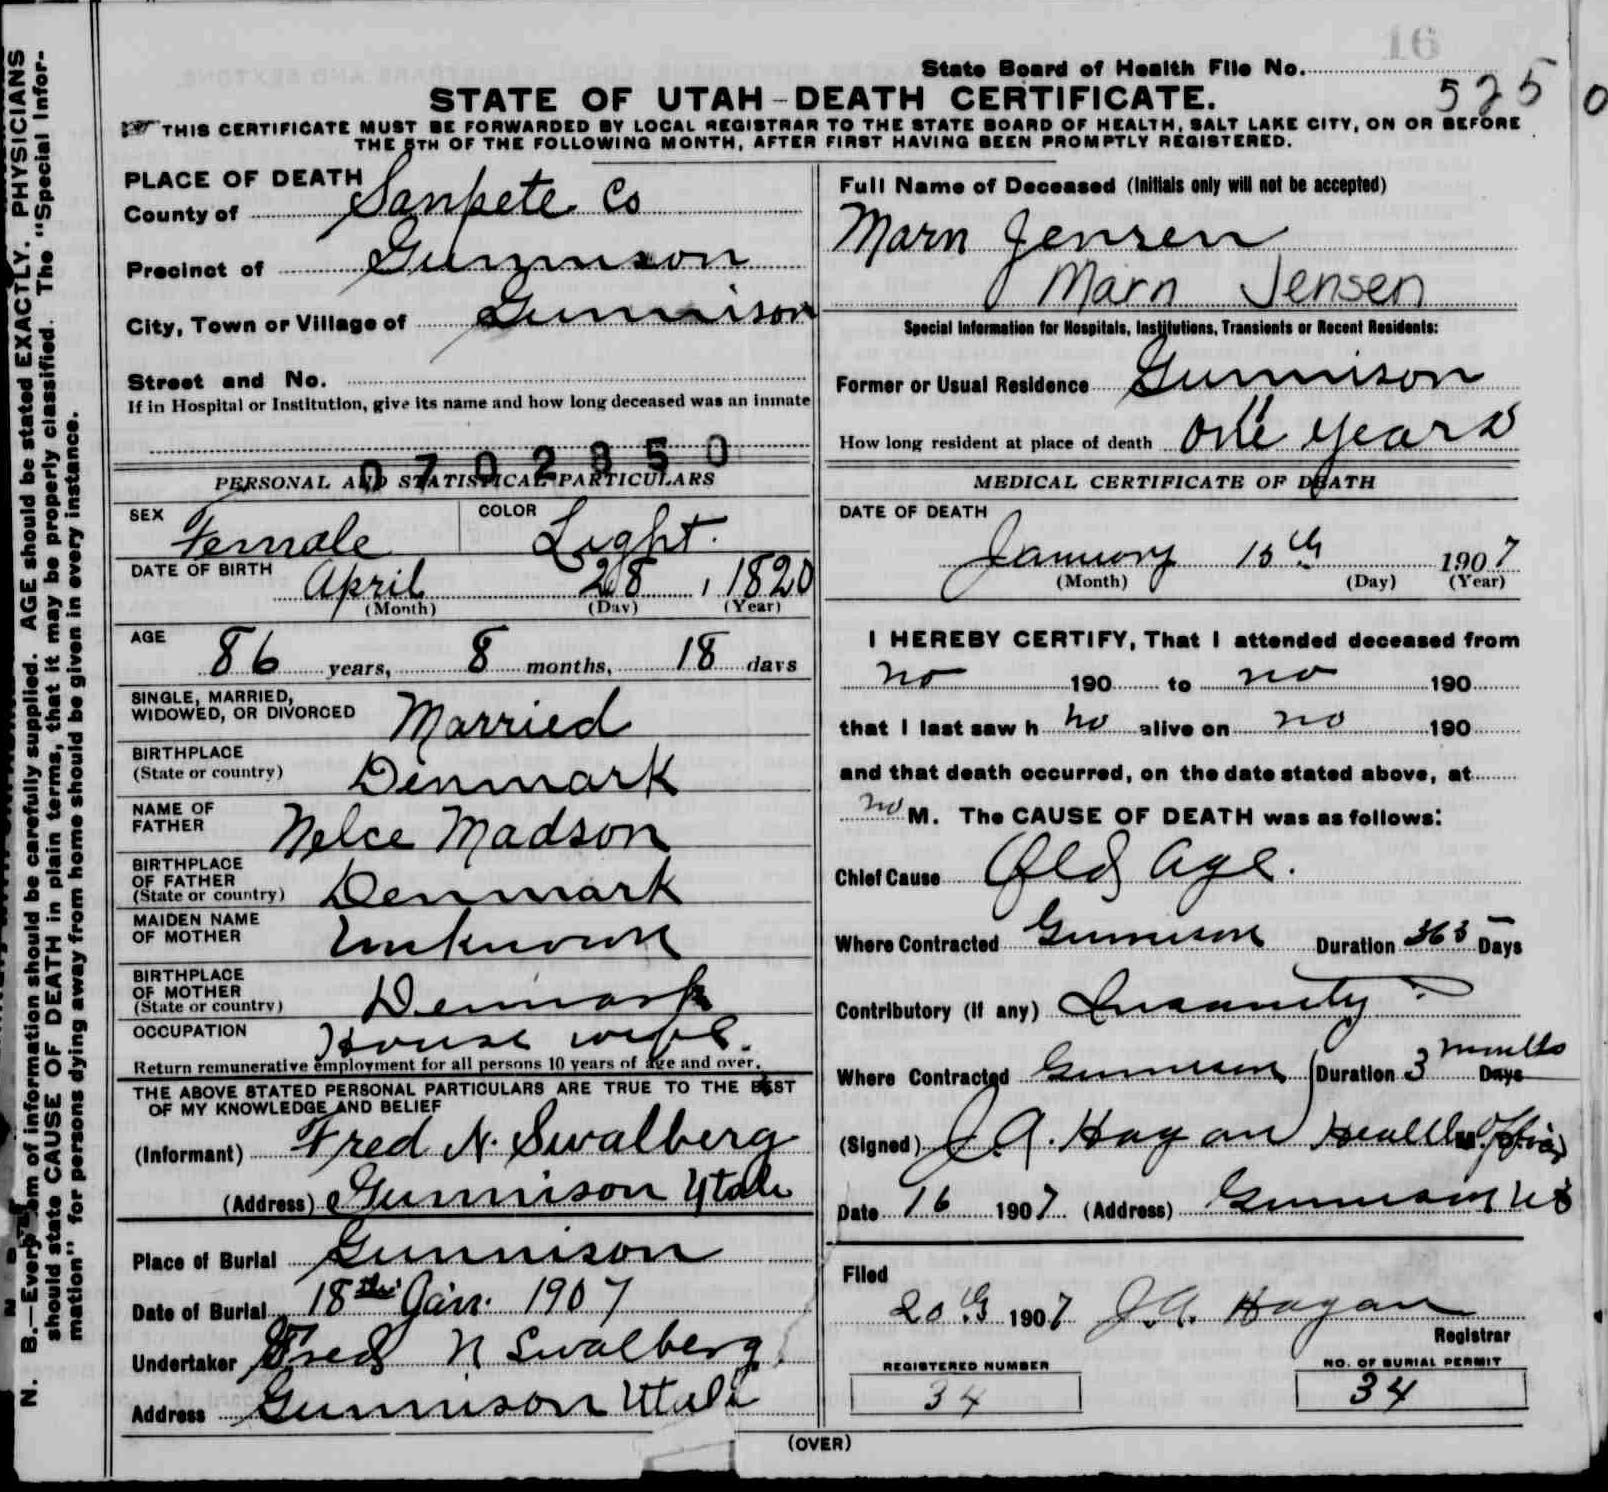 16
State Board of Health File No.
525 0
STATE OF UTAH-DEATH CERTIFICATE.
THIS CERTIFICATE MUST BE FORWARDED BY LOCAL REGISTRAR TO THE STATE BOARD OF HEALTH, SALT LAKE CITY, ON OR BEFORE
THE 5TH OF THE FOLLOWING MONTH, AFTER FIRST HAVING BEEN PROMPTLY REGISTERED.
PLACE OF DEATH
County of Sanpete Co
Precinct of Gunnison
City, Town or Village of Gunnison
Street and No.
If in Hospital or Institution, give its name and how long deceased was an inmate
0702350
PERSONAL AND STATISTICAL PARTICULARS
SEX Female COLOR Light.
DATE OF BIRTH April 28, 1820
(Month) (Day) (Year)
AGE 86 years, 8 months, 18 days
SINGLE, MARRIED,
WIDOWED, OR DIVORCED Married
BIRTHPLACE
(State or country) Denmark
NAME OF
FATHER Nelce Madson
BIRTHPLACE
OF FATHER
(State or country) Denmark
MAIDEN NAME
OF MOTHER Unknown
BIRTHPLACE
OF MOTHER
(State or country) Denmark
OCCUPATION House wife.
Return remunerative employment for all persons 10 years of age and over.
THE ABOVE STATED PERSONAL PARTICULARS ARE TRUE TO THE BEST
OF MY KNOWLEDGE AND BELIEF
(Informant) Fred N. Swalberg
(Address) Gunnison Utah
Place of Burial Gunnison
Date of Burial 18th Jan. 1907
Undertaker Fred N Swalberg.
Address Gunnison Utah
Full Name of Deceased (Initials only will not be accepted)
Marn Jensen
Marn Jensen
Special Information for Hospitals, Institutions, Transients or Recent Residents:
Former or Usual Residence Gunnison
How long resident at place of death one years
MEDICAL CERTIFICATE OF DEATH
DATE OF DEATH
January 15th 1907
(Month) (Day) (Year)
I HEREBY CERTIFY, That I attended deceased from
no 190 to no 190
that I last saw h no alive on no 190
and that death occurred, on the date stated above, at
no M. The CAUSE OF DEATH was as follows:
Chief Cause Old age.
Where Contracted Gunnison Duration 365 Days
Contributory (if any) Insanity
Where Contracted Gunnison Duration 3 months Days
(Signed) J.A. Hagan Health Officer
Date 16 1907 (Address) Gunnison Ut
Filed
20th 1907 J.A. Hagan
Registrar
REGISTERED NUMBER
34
NO. OF BURIAL PERMIT
34
(OVER)
N. B.—Every item of information should be carefully supplied. AGE should be stated EXACTLY. PHYSICIANS
should state CAUSE OF DEATH in plain terms, that it may be properly classified. The "Special Infor-
mation" for persons dying away from home should be given in every instance.